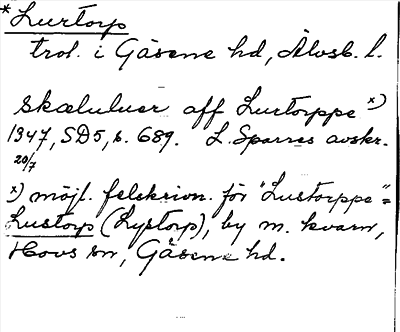 *Lurtorp
trol. i Gäsene hd, Älvsb. l.
Skæluluer aff Lurtorppe x)
1347, SD5, s. 689. L. Sparres avskr.
20/7
x) möjl. felskrivn. för "Lustorppe" =
Lustorp (Lystorp), by m. kvarn,
Hovs sn, Gäsene hd.